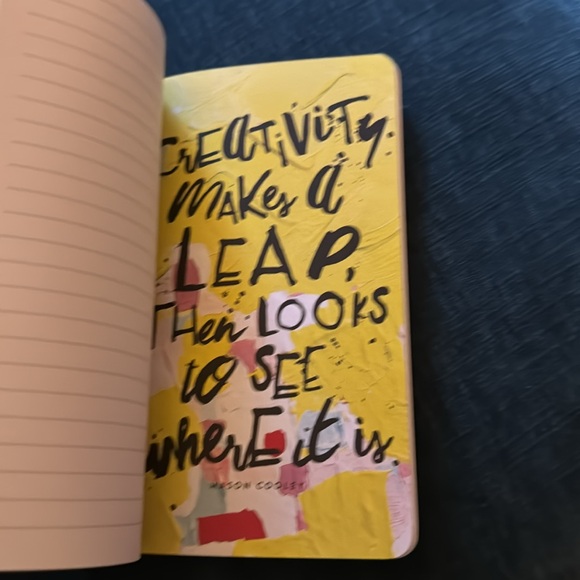 CrEaTiViTy
maKes a
LEAP,
THen LOOKS
to SEE
wherE it is.
MASON COOLEY